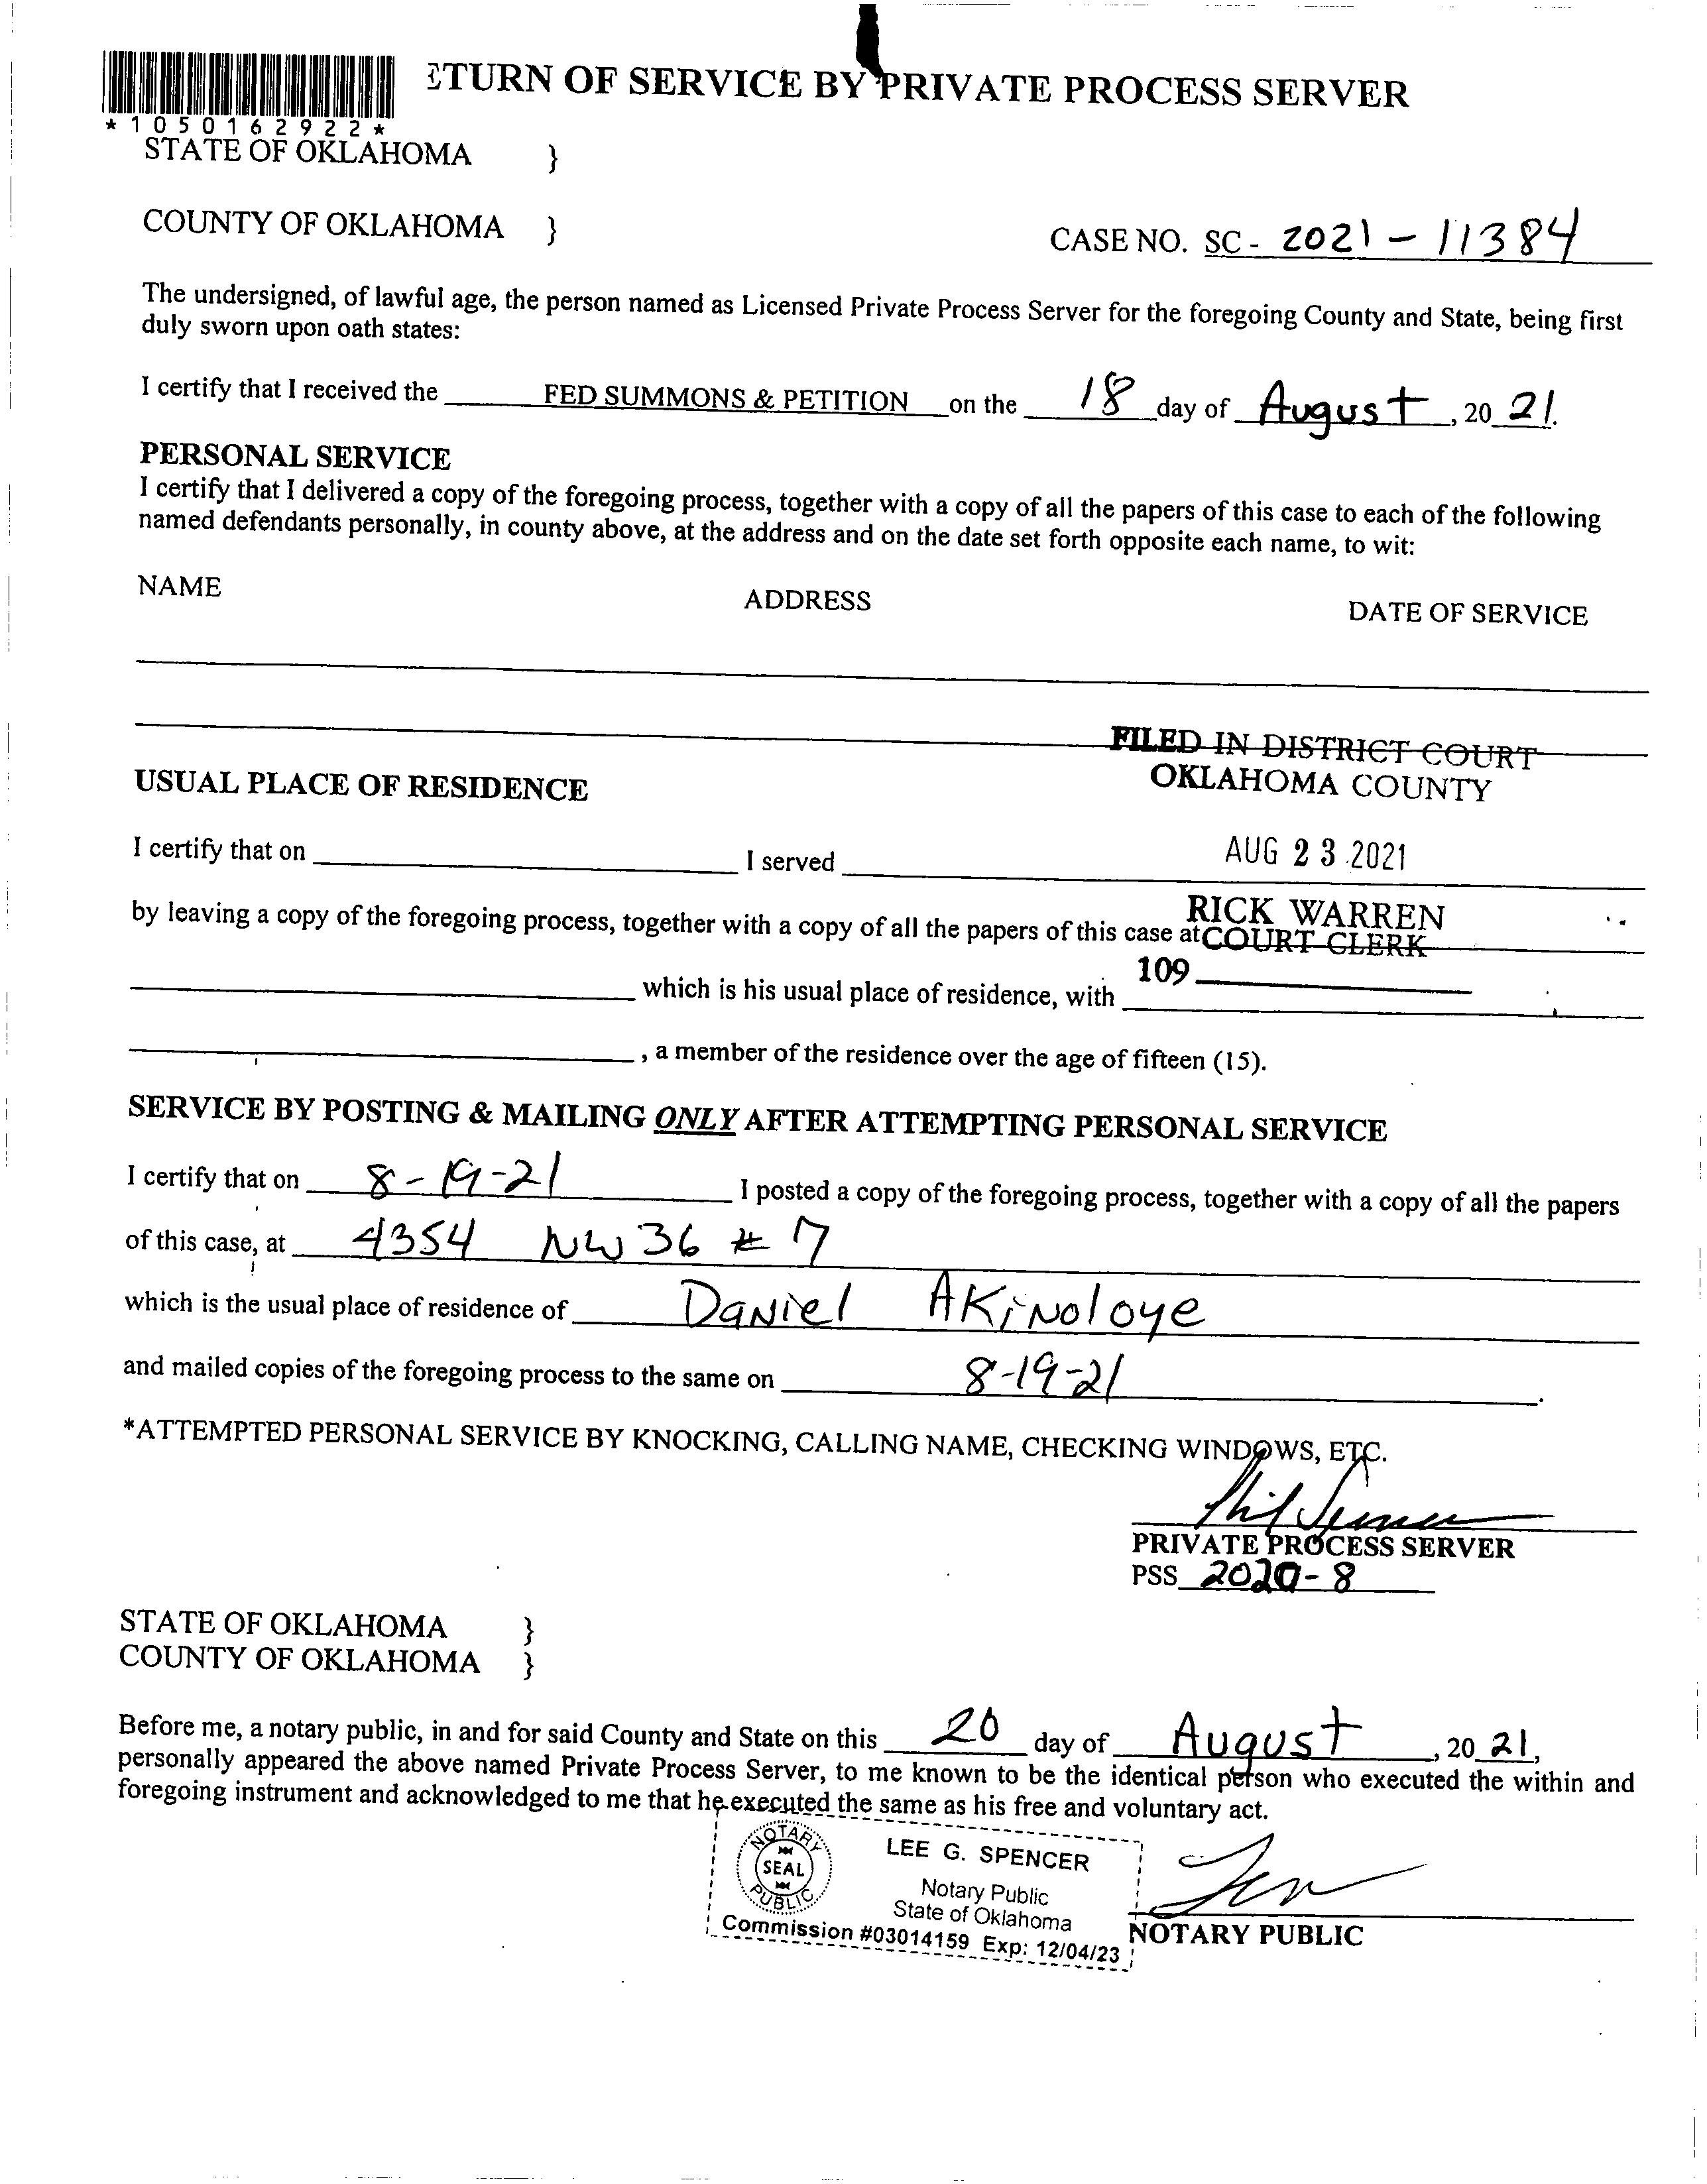 ETURN OF SERVICE BY PRIVATE PROCESS SERVER
*1050162922*
STATE OF OKLAHOMA }
COUNTY OF OKLAHOMA }
CASE NO. SC - 2021 - 11384
The undersigned, of lawful age, the person named as Licensed Private Process Server for the foregoing County and State, being first
duly sworn upon oath states:
I certify that I received the FED SUMMONS & PETITION on the 18 day of August, 20 21.
PERSONAL SERVICE
I certify that I delivered a copy of the foregoing process, together with a copy of all the papers of this case to each of the following
named defendants personally, in county above, at the address and on the date set forth opposite each name, to wit:
NAME ADDRESS DATE OF SERVICE
FILED IN DISTRICT COURT
OKLAHOMA COUNTY
USUAL PLACE OF RESIDENCE
I certify that on I served
AUG 23 2021
RICK WARREN
by leaving a copy of the foregoing process, together with a copy of all the papers of this case at
COURT CLERK
109
which is his usual place of residence, with
, a member of the residence over the age of fifteen (15).
SERVICE BY POSTING & MAILING ONLY AFTER ATTEMPTING PERSONAL SERVICE
I certify that on 8-19-21 I posted a copy of the foregoing process, together with a copy of all the papers
of this case, at 4354 NW 36 # 7
which is the usual place of residence of Daniel Akinoloye
and mailed copies of the foregoing process to the same on 8-19-21.
*ATTEMPTED PERSONAL SERVICE BY KNOCKING, CALLING NAME, CHECKING WINDOWS, ETC.
PRIVATE PROCESS SERVER
PSS 2020-8
STATE OF OKLAHOMA }
COUNTY OF OKLAHOMA }
Before me, a notary public, in and for said County and State on this 20 day of August, 20 21,
personally appeared the above named Private Process Server, to me known to be the identical person who executed the within and
foregoing instrument and acknowledged to me that he executed the same as his free and voluntary act.
NOTARY PUBLIC SEAL
LEE G. SPENCER
Notary Public
State of Oklahoma
Commission #03014159 Exp: 12/04/23
NOTARY PUBLIC